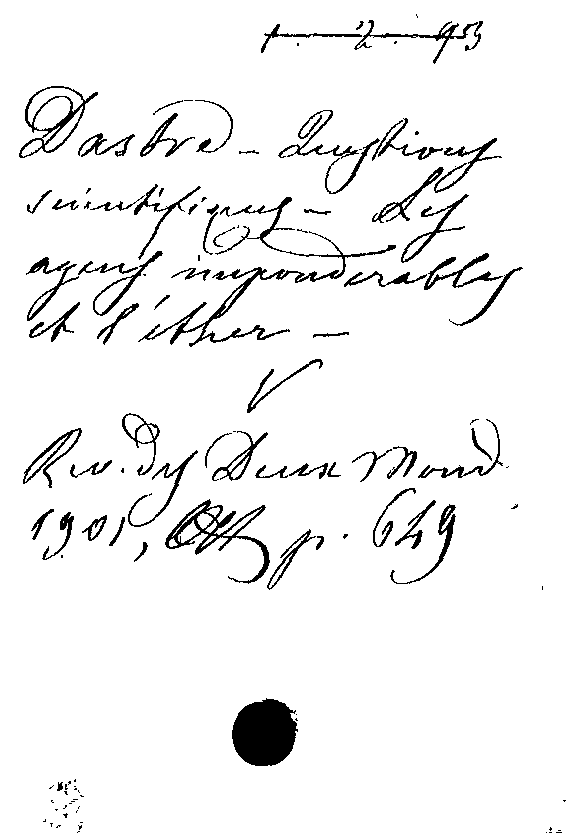 Dastre - Questions
scientifiques - Les
agents impondérables
et l'éther -
V
Rev. des Deux Mond.
1901, Oct p. 649